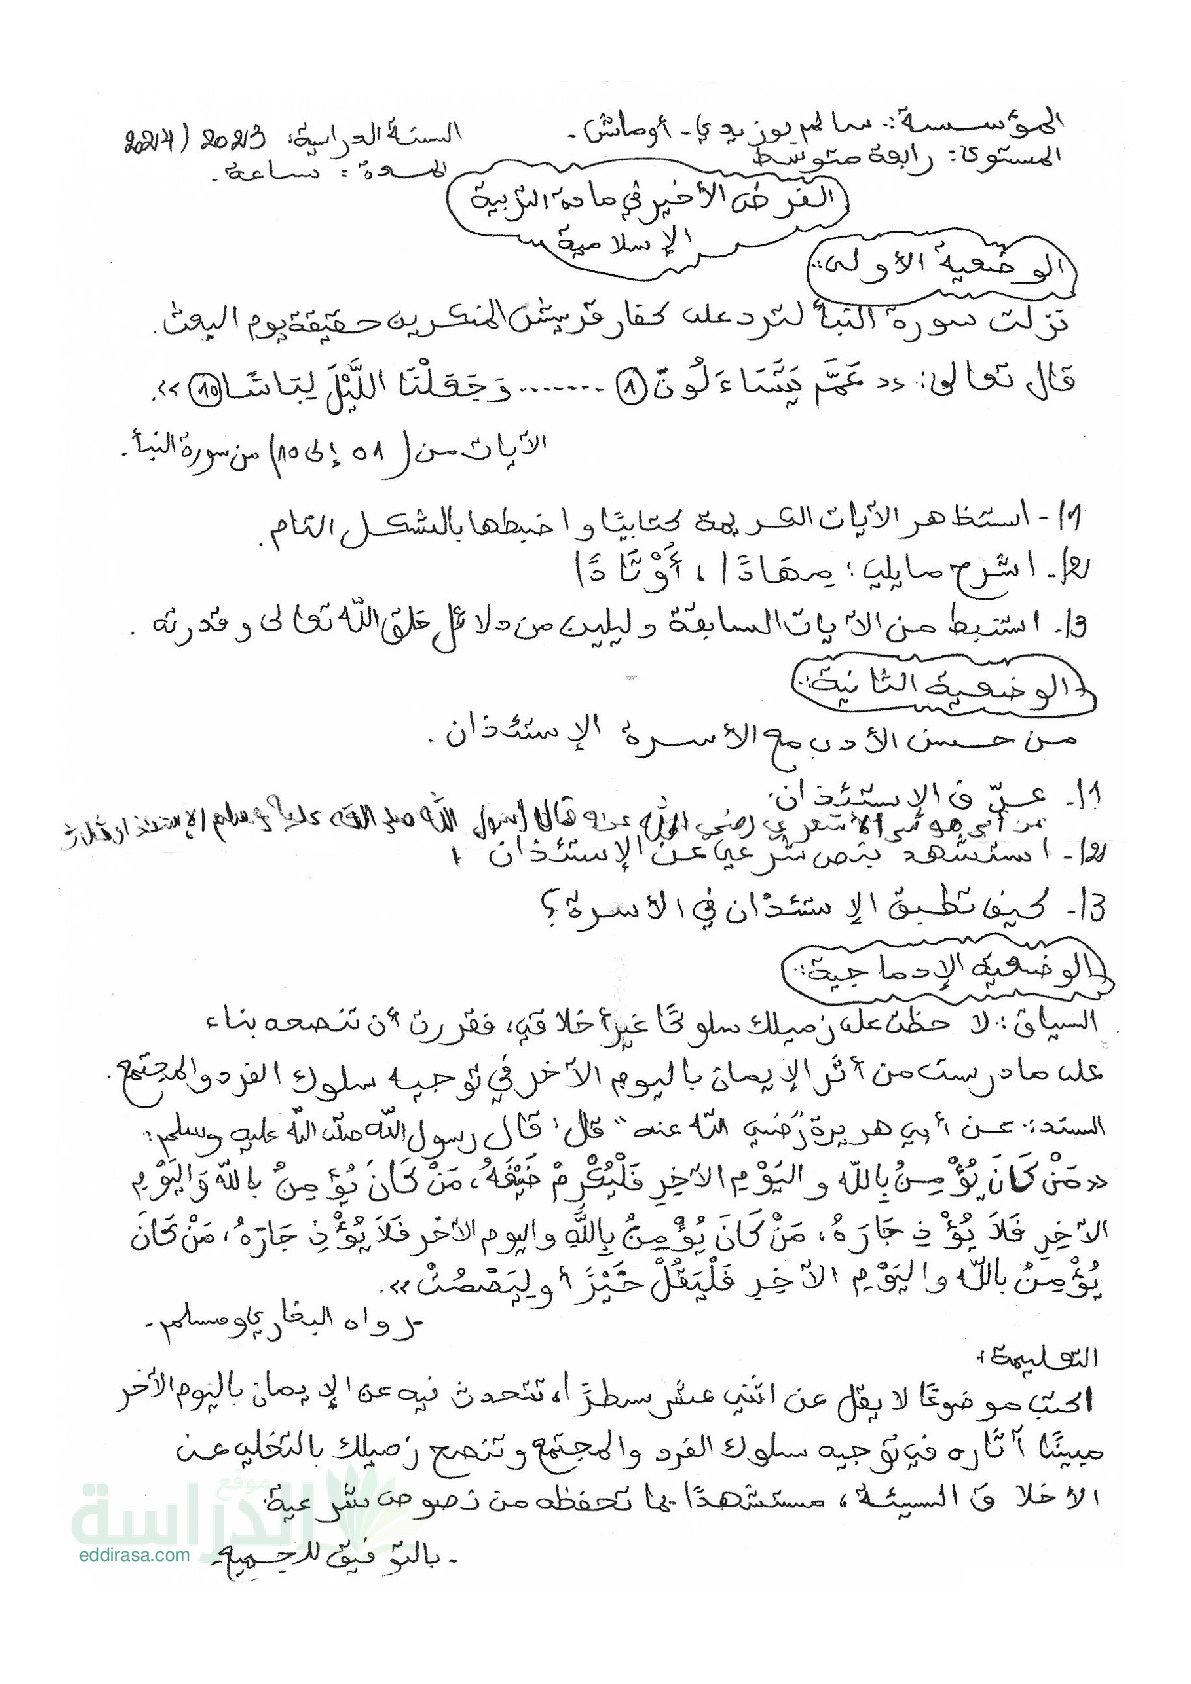 المؤسسة: سالم بوزيدي - أوماش -
السنة الدراسية: 2023 / 2024
المستوى: رابعة متوسط
المدة: ساعة.
الفرض الأخير في مادة التربية
الإسلامية
الوضعية الأولى:
نزلت سورة النبأ لترد على كفار قريش المنكرين حقيقة يوم البعث.
قال تعالى: « عَمَّ يَتَسَاءَلُونَ (1) ....... وَجَعَلْنَا اللَّيْلَ لِبَاسًا (10) ».
الآيات من (01 إلى 10) من سورة النبأ.
1/- استظهر الآيات الكريمة كتابيًا واضبطها بالشكل التام.
2/- اشرح مايلي: مِهَادًا، أَوْتَادًا
3/- استنبط من الآيات السابقة دليلين من دلائل خلق الله تعالى وقدرته.
الوضعية الثانية:
من حسن الأدب مع الأسرة الإستئذان.
1/- عرّف الإستئذان.
عن أبي موسى الأشعري رضي الله عنه قال رسول الله صلى الله عليه وسلم
2/- استشهد بنص شرعي عن الإستئذان
3/- كيف تطبق الإستئذان في الأسرة؟
الوضعية الإدماجية:
السياق: لاحظت على زميلك سلوكًا غير أخلاقي، فقررت أن تنصحه بناء
على ما درست من أثر الإيمان باليوم الآخر في توجيه سلوك الفرد والمجتمع.
السند: عن أبي هريرة "رضي الله عنه" قال: قال رسول الله صلى الله عليه وسلم:
« مَنْ كَانَ يُؤْمِنُ بِالله و اليَوْمِ الآخِرِ فَلْيُكْرِمْ ضَيْفَهُ، مَنْ كَانَ يُؤمِنُ بالله وَاليَوْمِ
الآخِرِ فَلَا يُؤْذِ جَارَهُ، مَنْ كَانَ يُؤْمِنُ بِاللَّهِ واليوم الآخر فَلَا يُؤْذِ جَارَهُ، مَنْ كَانَ
يُؤْمِنُ بالله واليَوْمِ الآخِرِ فَلْيَقُلْ خَيْرًا أو لِيَصْمُتْ ».
- رواه البخاري ومسلم -
التعليمة:
اكتب موضوعًا لا يقل عن اثني عشر سطرًا، تتحدث فيه عن الإيمان باليوم الآخر
مبينًا آثاره في توجيه سلوك الفرد والمجتمع وتنصح زميلك بالتخلي عن
الأخلاق السيئة، مستشهدًا بما تحفظه من نصوص شرعية.
- بالتوفيق للجميع -
موقع
الدراسة
eddirasa.com